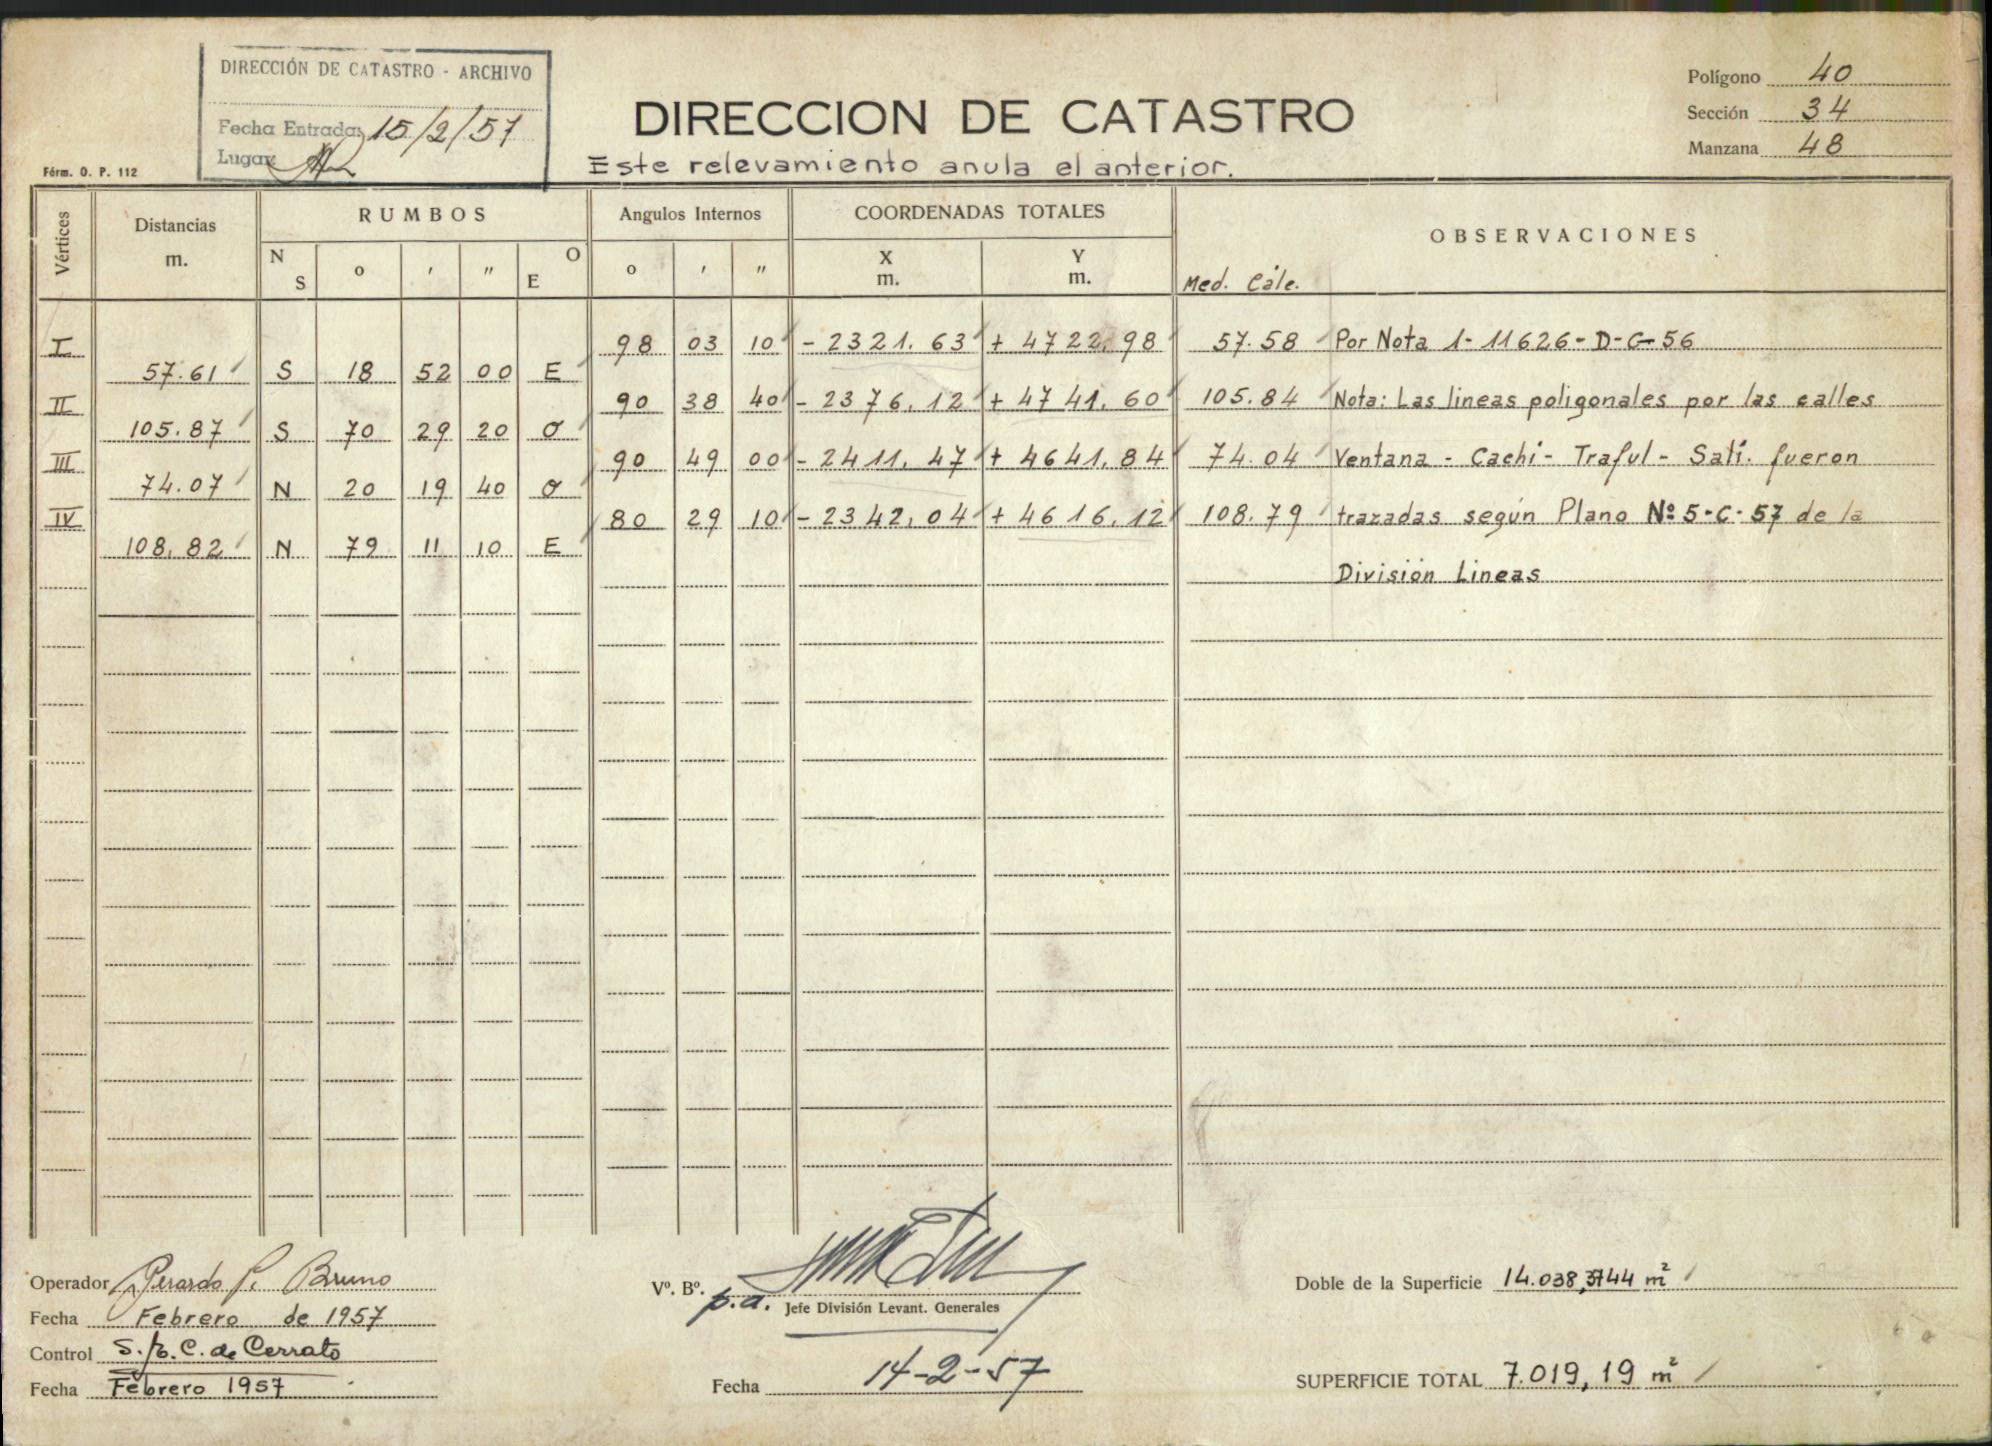 DIRECCIÓN DE CATASTRO - ARCHIVO
Fecha Entrada 15/2/57
Lugar
DIRECCION DE CATASTRO
Este relevamiento anula el anterior.
Polígono 40
Sección 34
Manzana 48
Fórm. O. P. 112
Vértices
Distancias
m.
RUMBOS
N
S
o
'
"
O
E
Angulos Internos
o
'
"
COORDENADAS TOTALES
X
m.
Y
m.
OBSERVACIONES
Med. Cálc.
I 98 03 10 - 2321.63 + 4722.98 57.58 Por Nota 1-11626-D-C-56
57.61 S 18 52 00 E
II 90 38 40 - 2376.12 + 4741.60 105.84 Nota: Las lineas poligonales por las calles
105.87 S 70 29 20 O
III 90 49 00 - 2411.47 + 4641.84 74.04 Ventana - Cachi - Traful - Satí. fueron
74.07 N 20 19 40 O
IV 80 29 10 - 2342,04 + 4616,12 108.79 trazadas según Plano Nº 5-C-57 de la
108,82 N 79 11 10 E
División Lineas
Operador Gerardo P. Bruno
Fecha Febrero de 1957
Control S. P. C. de Cerrato
Fecha Febrero 1957
Vº. Bº.
p.a. Jefe División Levant. Generales
Fecha 14-2-57
Doble de la Superficie 14.038,3744 m²
SUPERFICIE TOTAL 7.019,19 m²